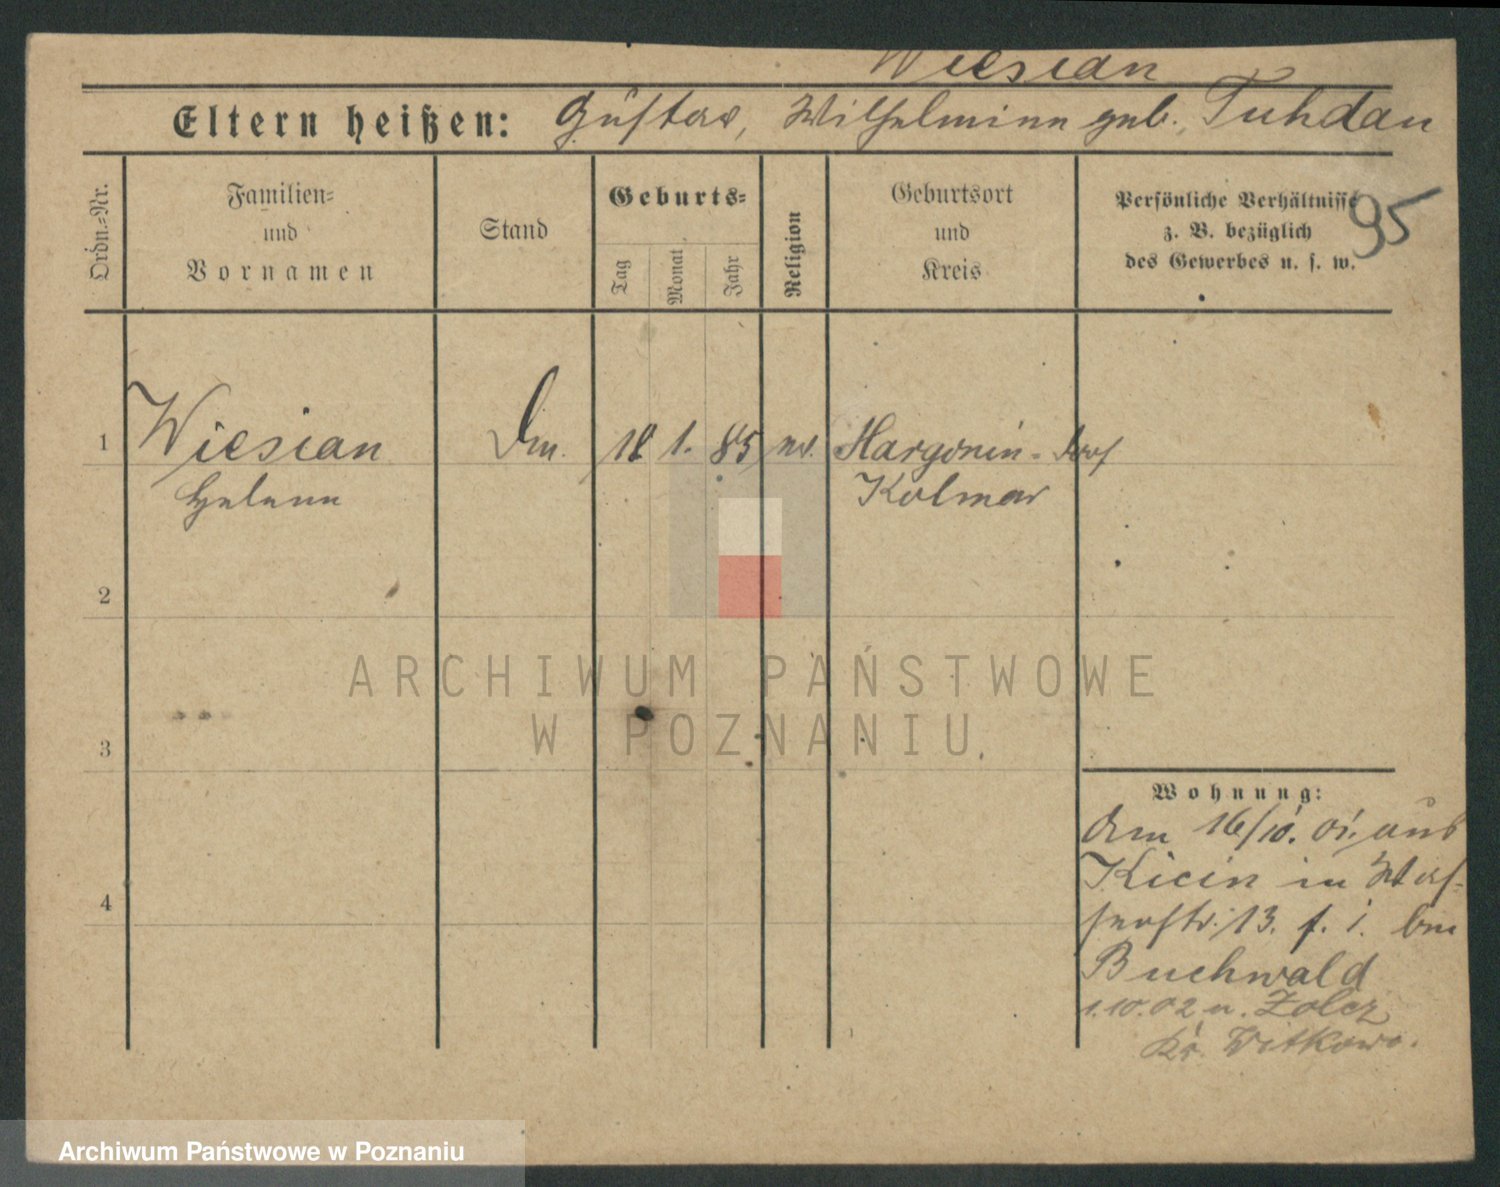 Wiesian
Eltern heißen: Gustav, Wilhelmine geb. Tuhdan
Ordn.-Nr.
Familien-
und
Vornamen
Stand
Geburts-
Tag
Monat
Jahr
Religion
Geburtsort
und
Kreis
Persönliche Verhältnisse
z. B. bezüglich
des Gewerbes u. s. w.
95
1 Wiesian 18 1. 85 ev. Margonin-Dorf
Helene Kolmar
2
3
4
Wohnung:
16/10. 01. aus
Kicin in Was-
serstr. 13. bei
Buchwald
1.10.02 n. Zolcz
Kr. Witkowo.
ARCHIWUM PAŃSTWOWE
W POZNANIU
Archiwum Państwowe w Poznaniu